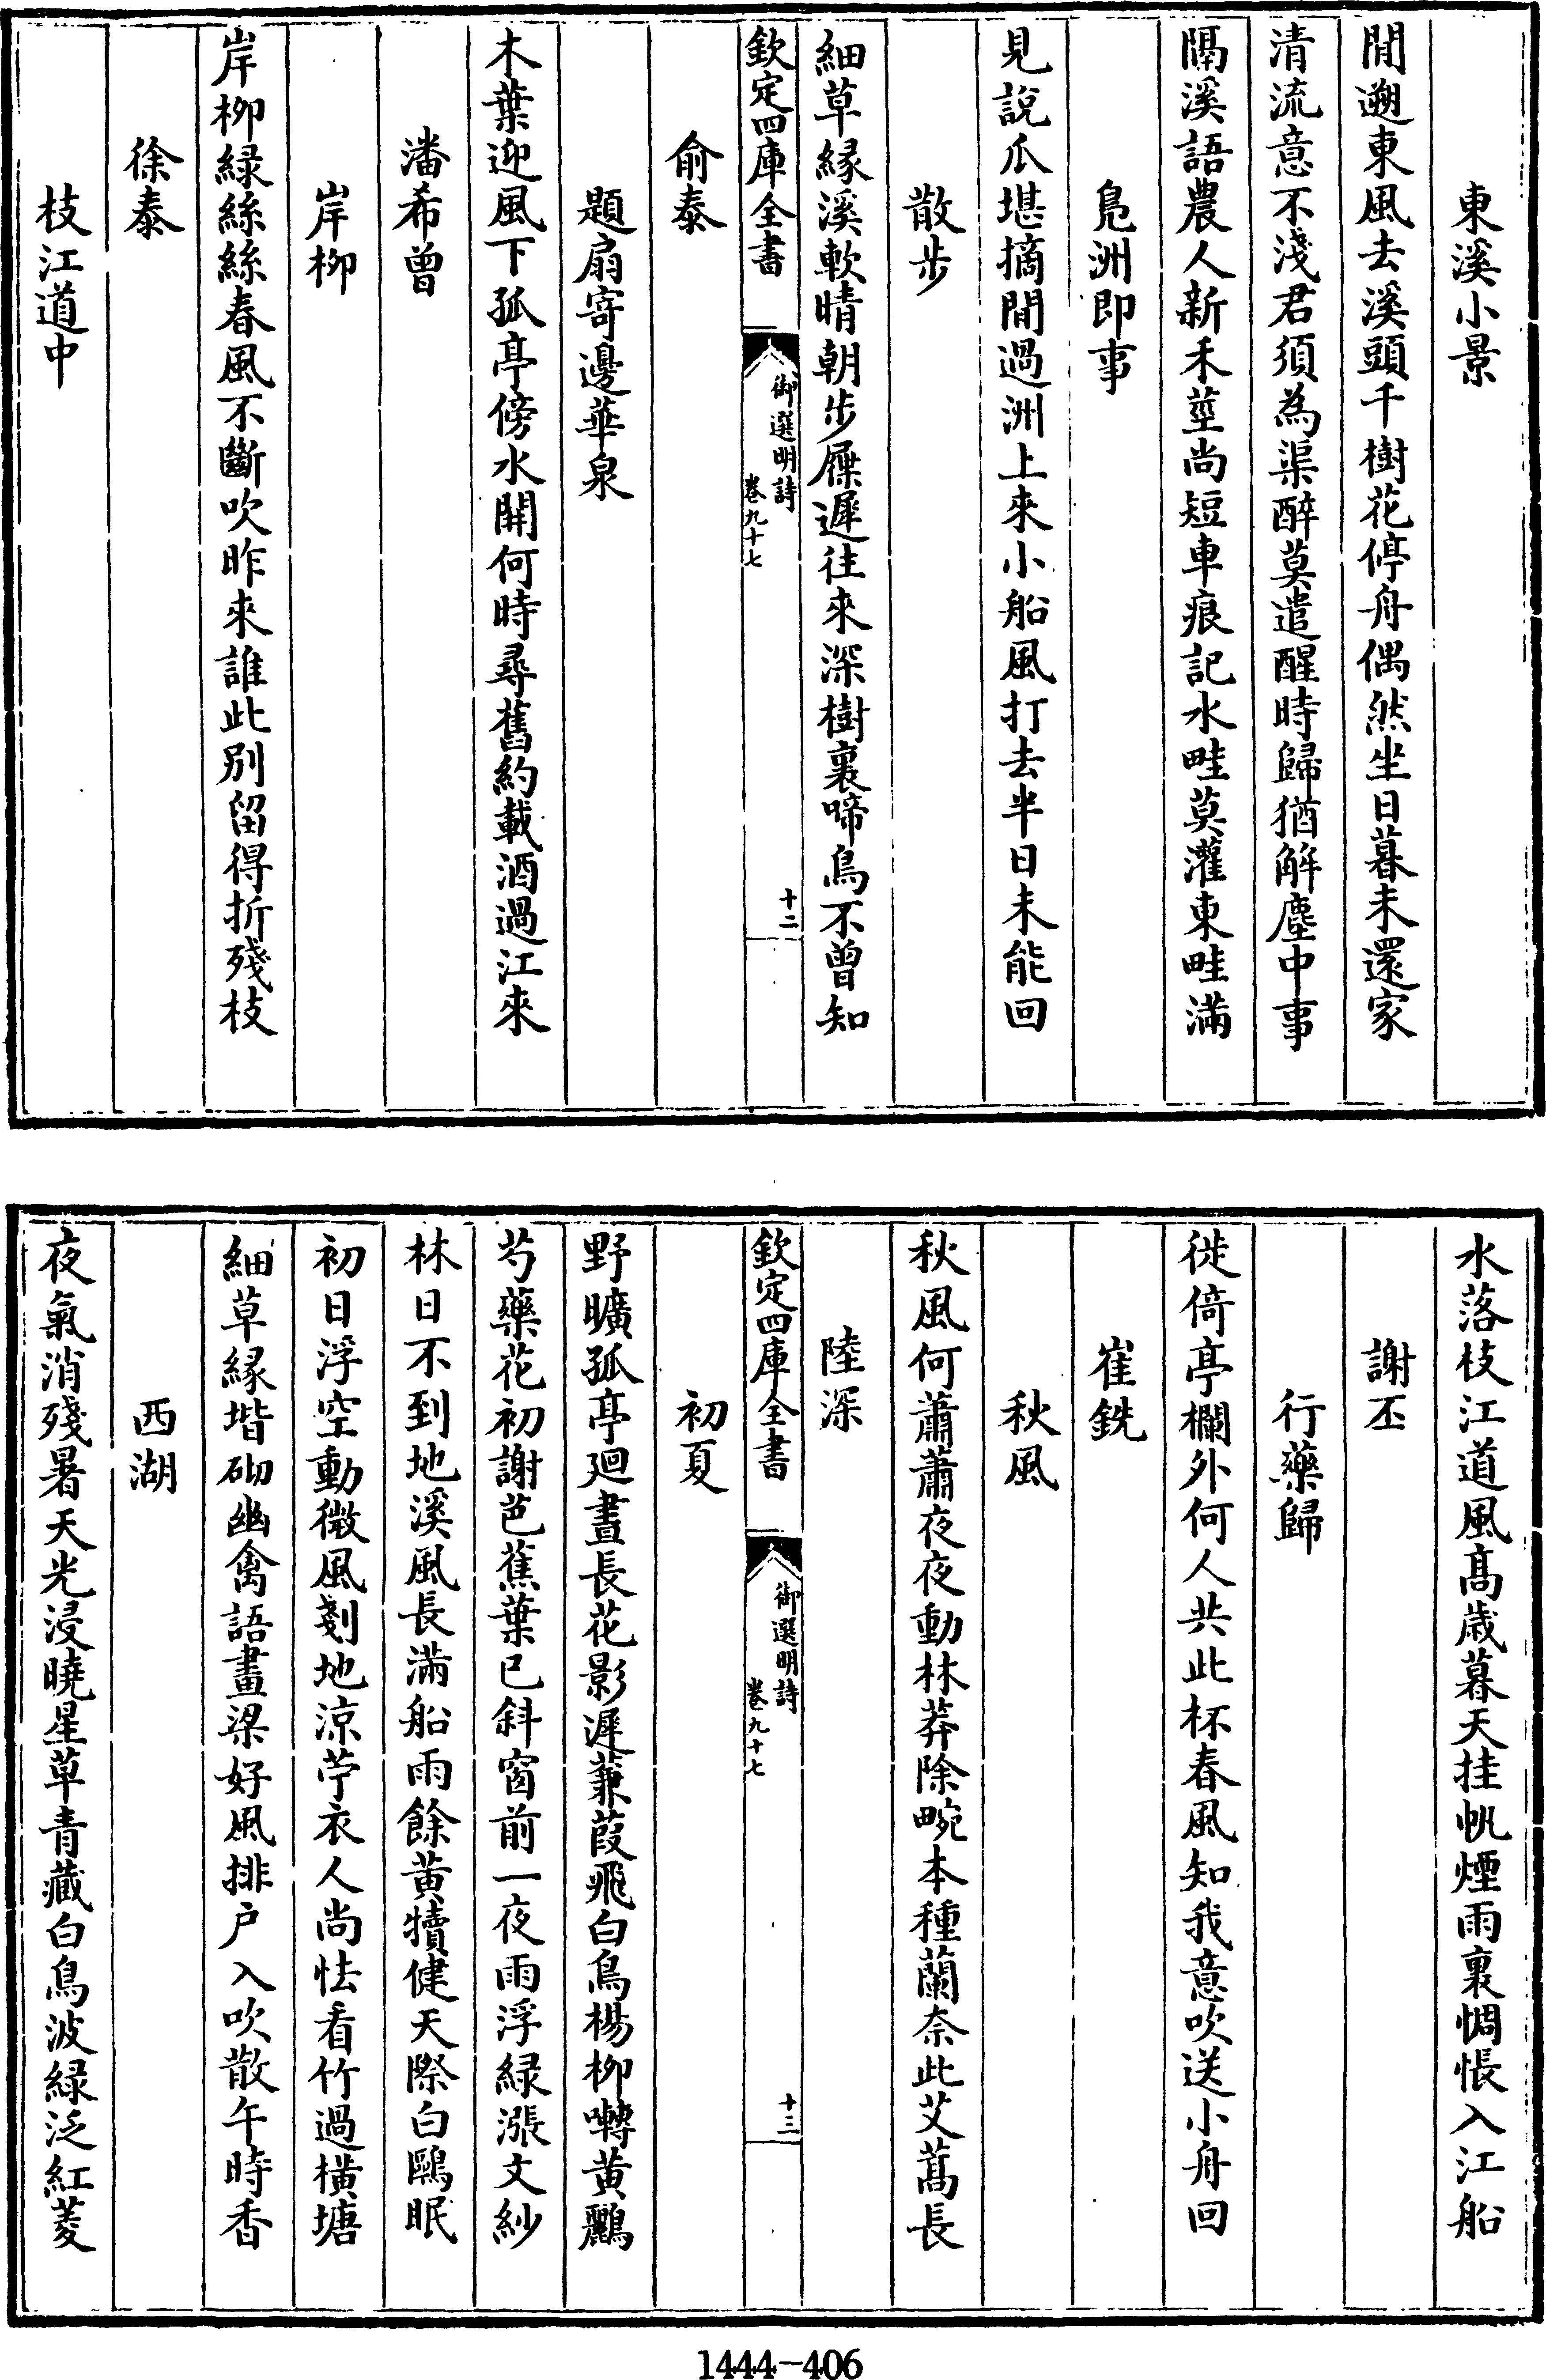 東溪小景
閒遡東風去溪頭千樹花停舟偶然坐日暮未還家
清流意不淺君須為渠醉莫遣醒時歸猶解塵中事
隔溪語農人新禾莖尚短車痕記水畦莫灌東畦滿
鳬洲即事
見說瓜堪摘閒過洲上來小船風打去半日未能回
散步
細草緣溪軟晴朝步屧遲往來深樹裏啼鳥不曾知
欽定四庫全書
御選明詩
卷九十七
十二
俞泰
題扇寄邊華泉
木葉迎風下孤亭傍水開何時尋舊約載酒過江來
潘希曾
岸柳
岸柳緑絲絲春風不斷吹昨來誰此別留得折殘枝
徐泰
枝江道中
水落枝江道風髙歳暮天挂帆煙雨裏惆悵入江船
謝丕
行藥歸
徙倚亭欄外何人共此杯春風知我意吹送小舟回
崔銑
秋風
秋風何蕭蕭夜夜動林莽除畹本種蘭奈此艾蒿長
欽定四庫全書
御選明詩
卷九十七
十三
陸深
初夏
野曠孤亭廻晝長花影遲蒹葭飛白鳥楊柳囀黄鸝
芍藥花初謝芭蕉葉已斜窗前一夜雨浮緑漲文紗
林日不到地溪風長滿船雨餘黄犢健天際白鷗眠
初日浮空動微風剗地涼苧衣人尚怯看竹過横塘
細草緣堦砌幽禽語畫梁好風排户入吹散午時香
西湖
夜氣消殘暑天光浸曉星草青藏白鳥波緑泛紅菱
1444-406